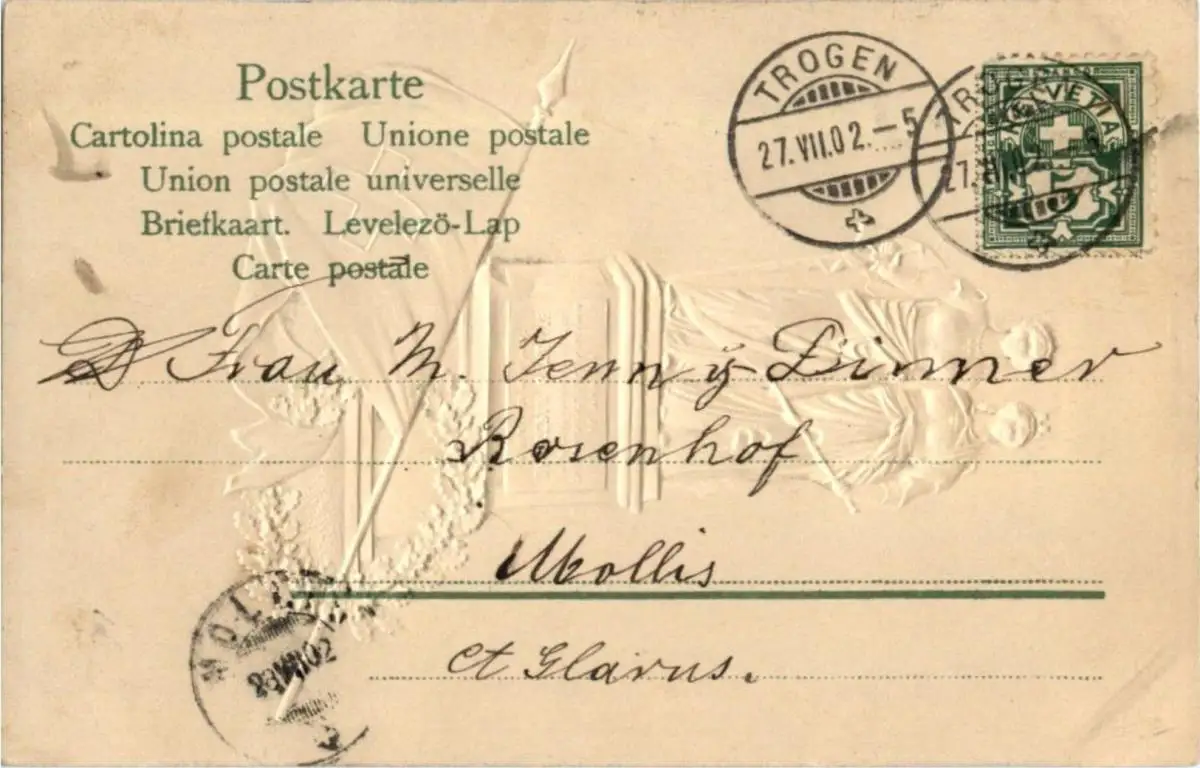 Postkarte
Cartolina postale Unione postale
Union postale universelle
Briefkaart. Levelezö-Lap
Carte postale
TROGEN
27.VII.02.–5
TROGEN
27.VII.02.–5
HELVETIA
Frau M. Jenny-Dinner
Rosenhof
Mollis
Ct Glarus.
MOLLIS
28.VII.02